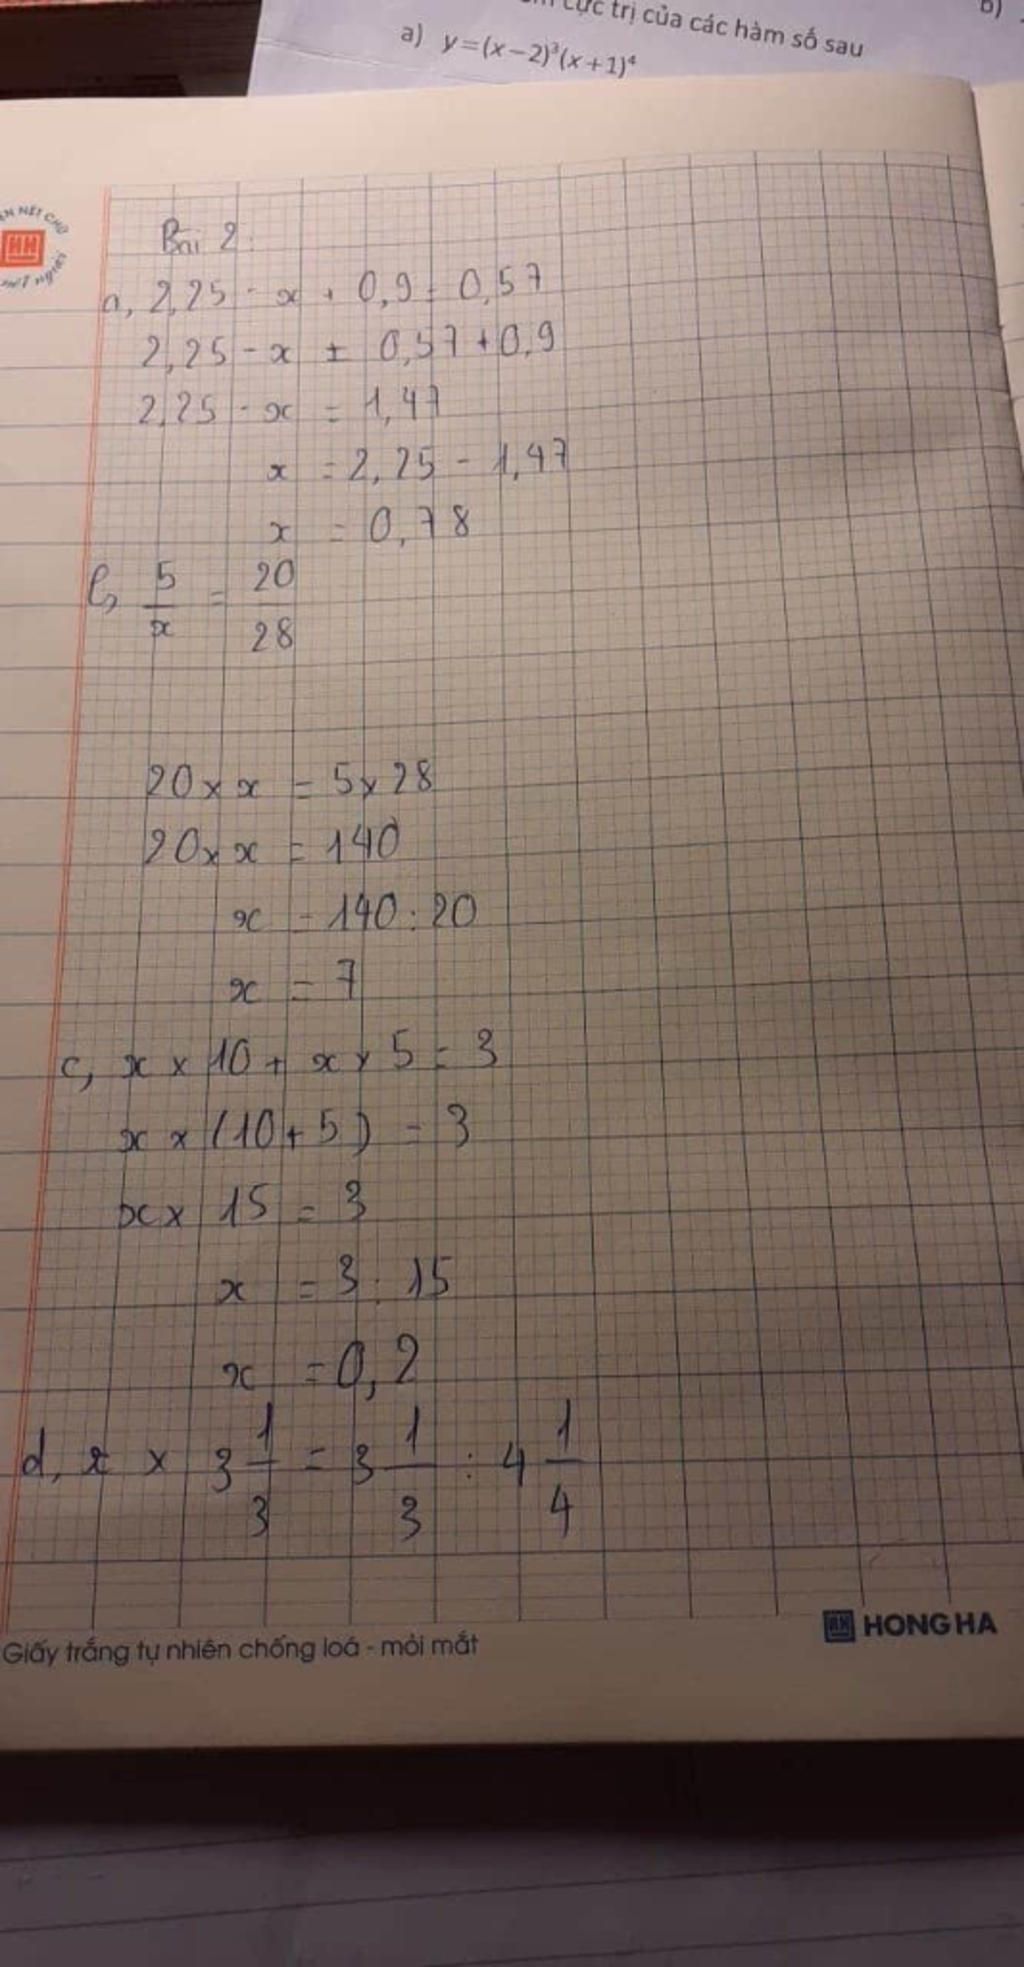 cực trị của các hàm số sau
b)
a) y=(x-2)³(x+1)⁴
NÉT CHỮ
Bài 2:
a, 2,25 - x + 0,9 = 0,57
2,25 - x = 0,57 + 0,9
2,25 - x = 1,47
x = 2,25 - 1,47
x = 0,78
b, 5/x = 20/28
20 x x = 5 x 28
20 x x = 140
x = 140 : 20
x = 7
c, x x 10 + x x 5 = 3
x x (10 + 5) = 3
x x 15 = 3
x = 3 : 15
x = 0,2
d, x x 3 1/3 = 3 1/3 : 4 1/4
HONG HA
Giấy trắng tự nhiên chống loá - mỏi mắt